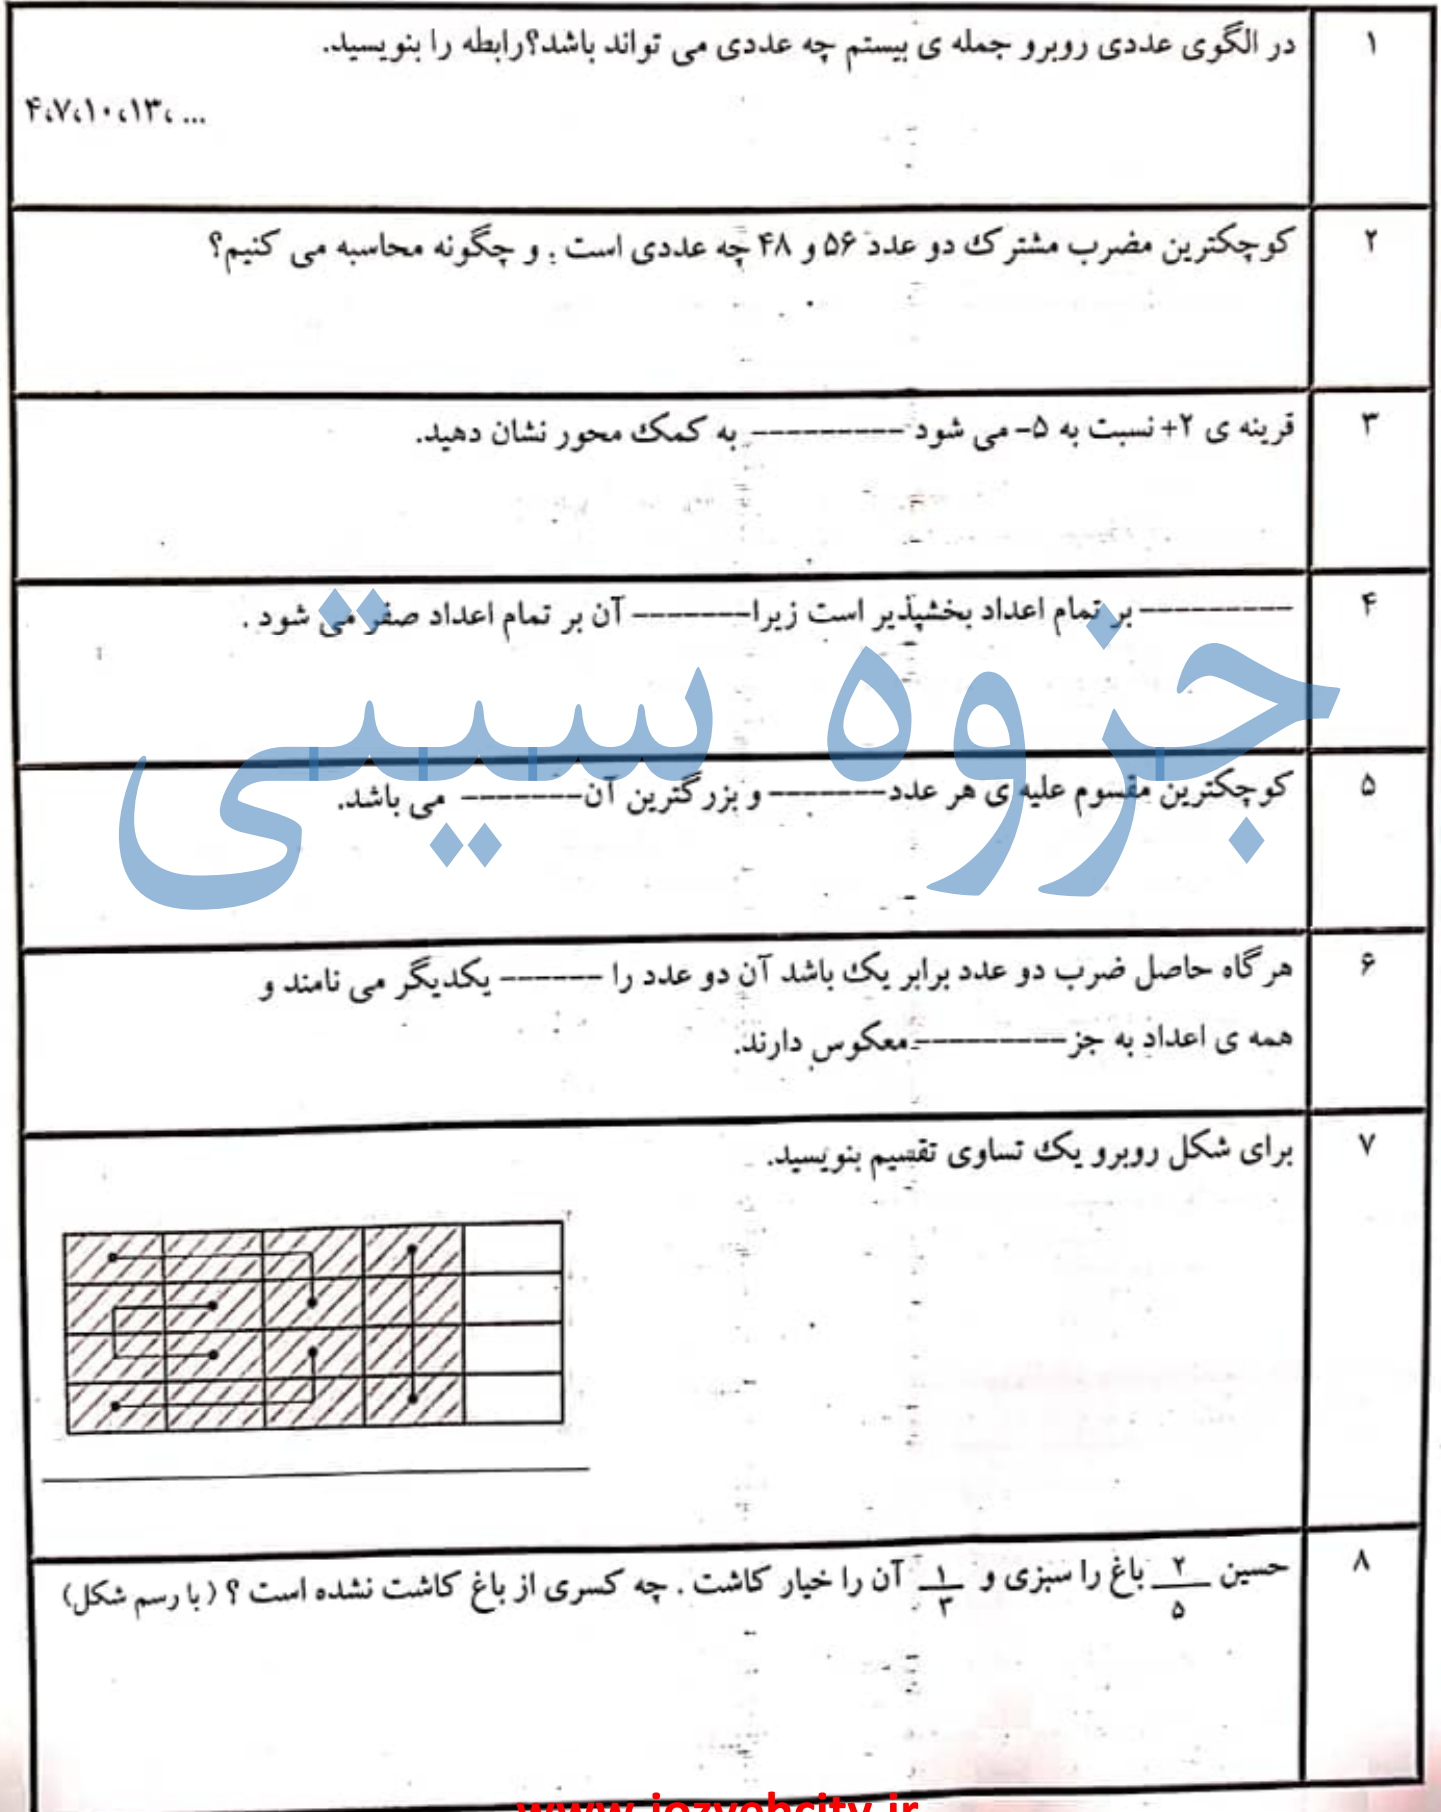 ۱
در الگوی عددی روبرو جمله ی بیستم چه عددی می تواند باشد؟رابطه را بنویسید.
۴،۷،۱۰،۱۳، ...
۲
کوچکترین مضرب مشترک دو عدد ۵۶ و ۴۸ چه عددی است . و چگونه محاسبه می کنیم؟
۳
قرینه ی ۲+ نسبت به ۵- می شود --------- به کمک محور نشان دهید.
۴
--------- بر تمام اعداد بخشپذیر است زیرا------- آن بر تمام اعداد صفر می شود .
جزوه سیتی
۵
کوچکترین مقسوم علیه ی هر عدد------- و بزرگترین آن------- می باشد.
۶
هر گاه حاصل ضرب دو عدد برابر یک باشد آن دو عدد را ------ یکدیگر می نامند و
همه ی اعداد به جز--------- معکوس دارند.
۷
برای شکل روبرو یک تساوی تقسیم بنویسید.
۸
حسین ۲/۵ باغ را سبزی و ۱/۳ آن را خیار کاشت . چه کسری از باغ کاشت نشده است ؟ ( با رسم شکل)
www.jozvehcity.ir